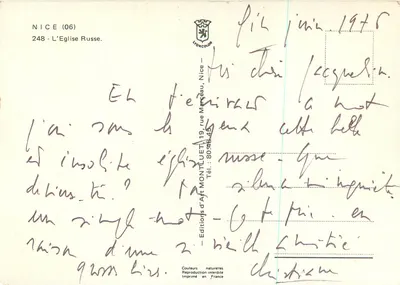 NICE (06)
248 - L'Eglise Russe.
Editions d'Art MONTLUET, 19, rue Marceau, Nice -
Tél. : 80.
fin juin. 1976
très chère Jacqueline.
En t'écrivant ce mot
j'ai sous les yeux cette belle
et insolite église russe - que
deviens-tu ? Ton silence m'inquiète
un simple mot - je te prie. en
raison d'une si vieille amitié
gross bises. Christiane
Couleurs naturelles
Reproduction interdite
Imprimé en France